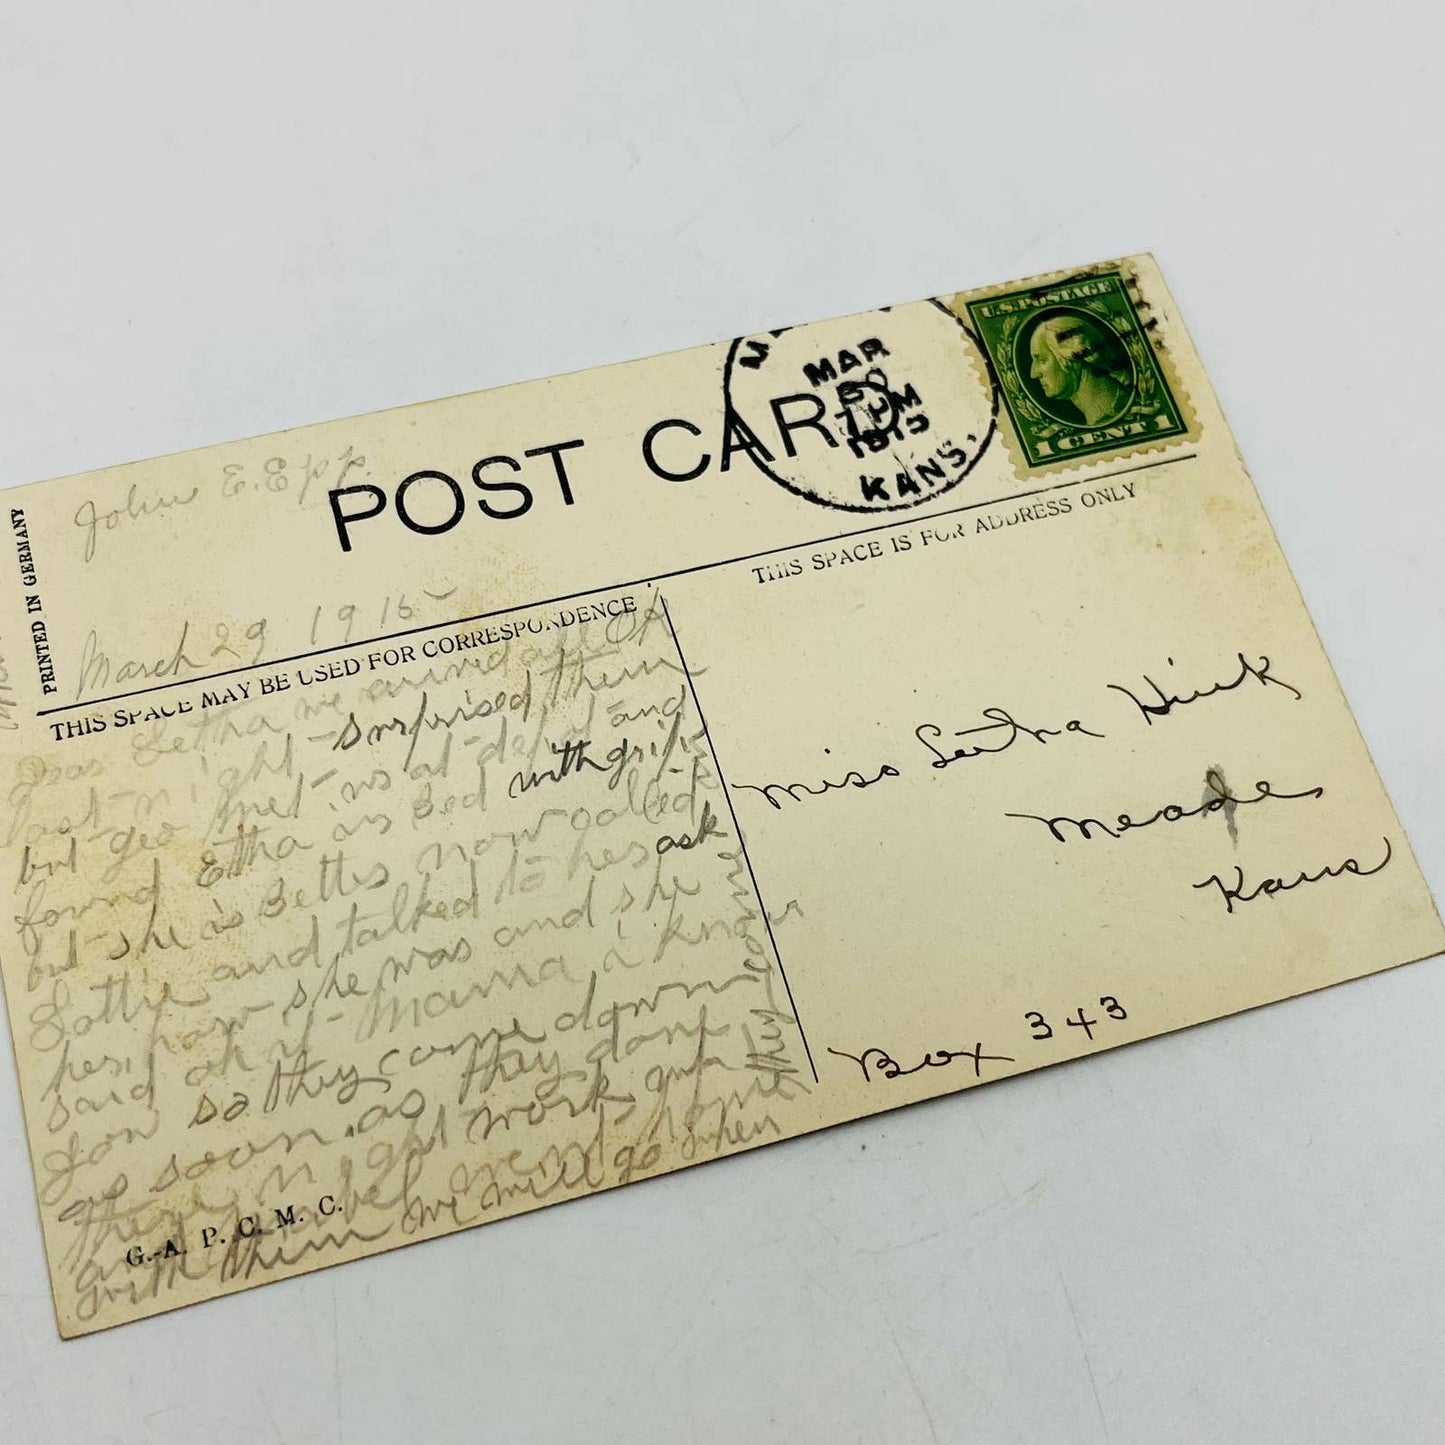 John E. Epp.
POST CARD
MAR
30
PM
KANS.
U.S. POSTAGE
1 CENT 1
PRINTED IN GERMANY
March 29 1915
THIS SPACE MAY BE USED FOR CORRESPONDENCE
THIS SPACE IS FOR ADDRESS ONLY
Dear Letha we arrived all OK
last night - surprised them
but geo met us at depot and
found Etha in Bed with grip
but she is Better now called
Lottie and talked to her ask
her how she was and she
said ok if Mama i know
so they come down
as soon as they
night work
and Mabel went home
with them we will go when
they
Miss Letha
Meade
Kans
Box 343
G.-A. P. C. M. C.